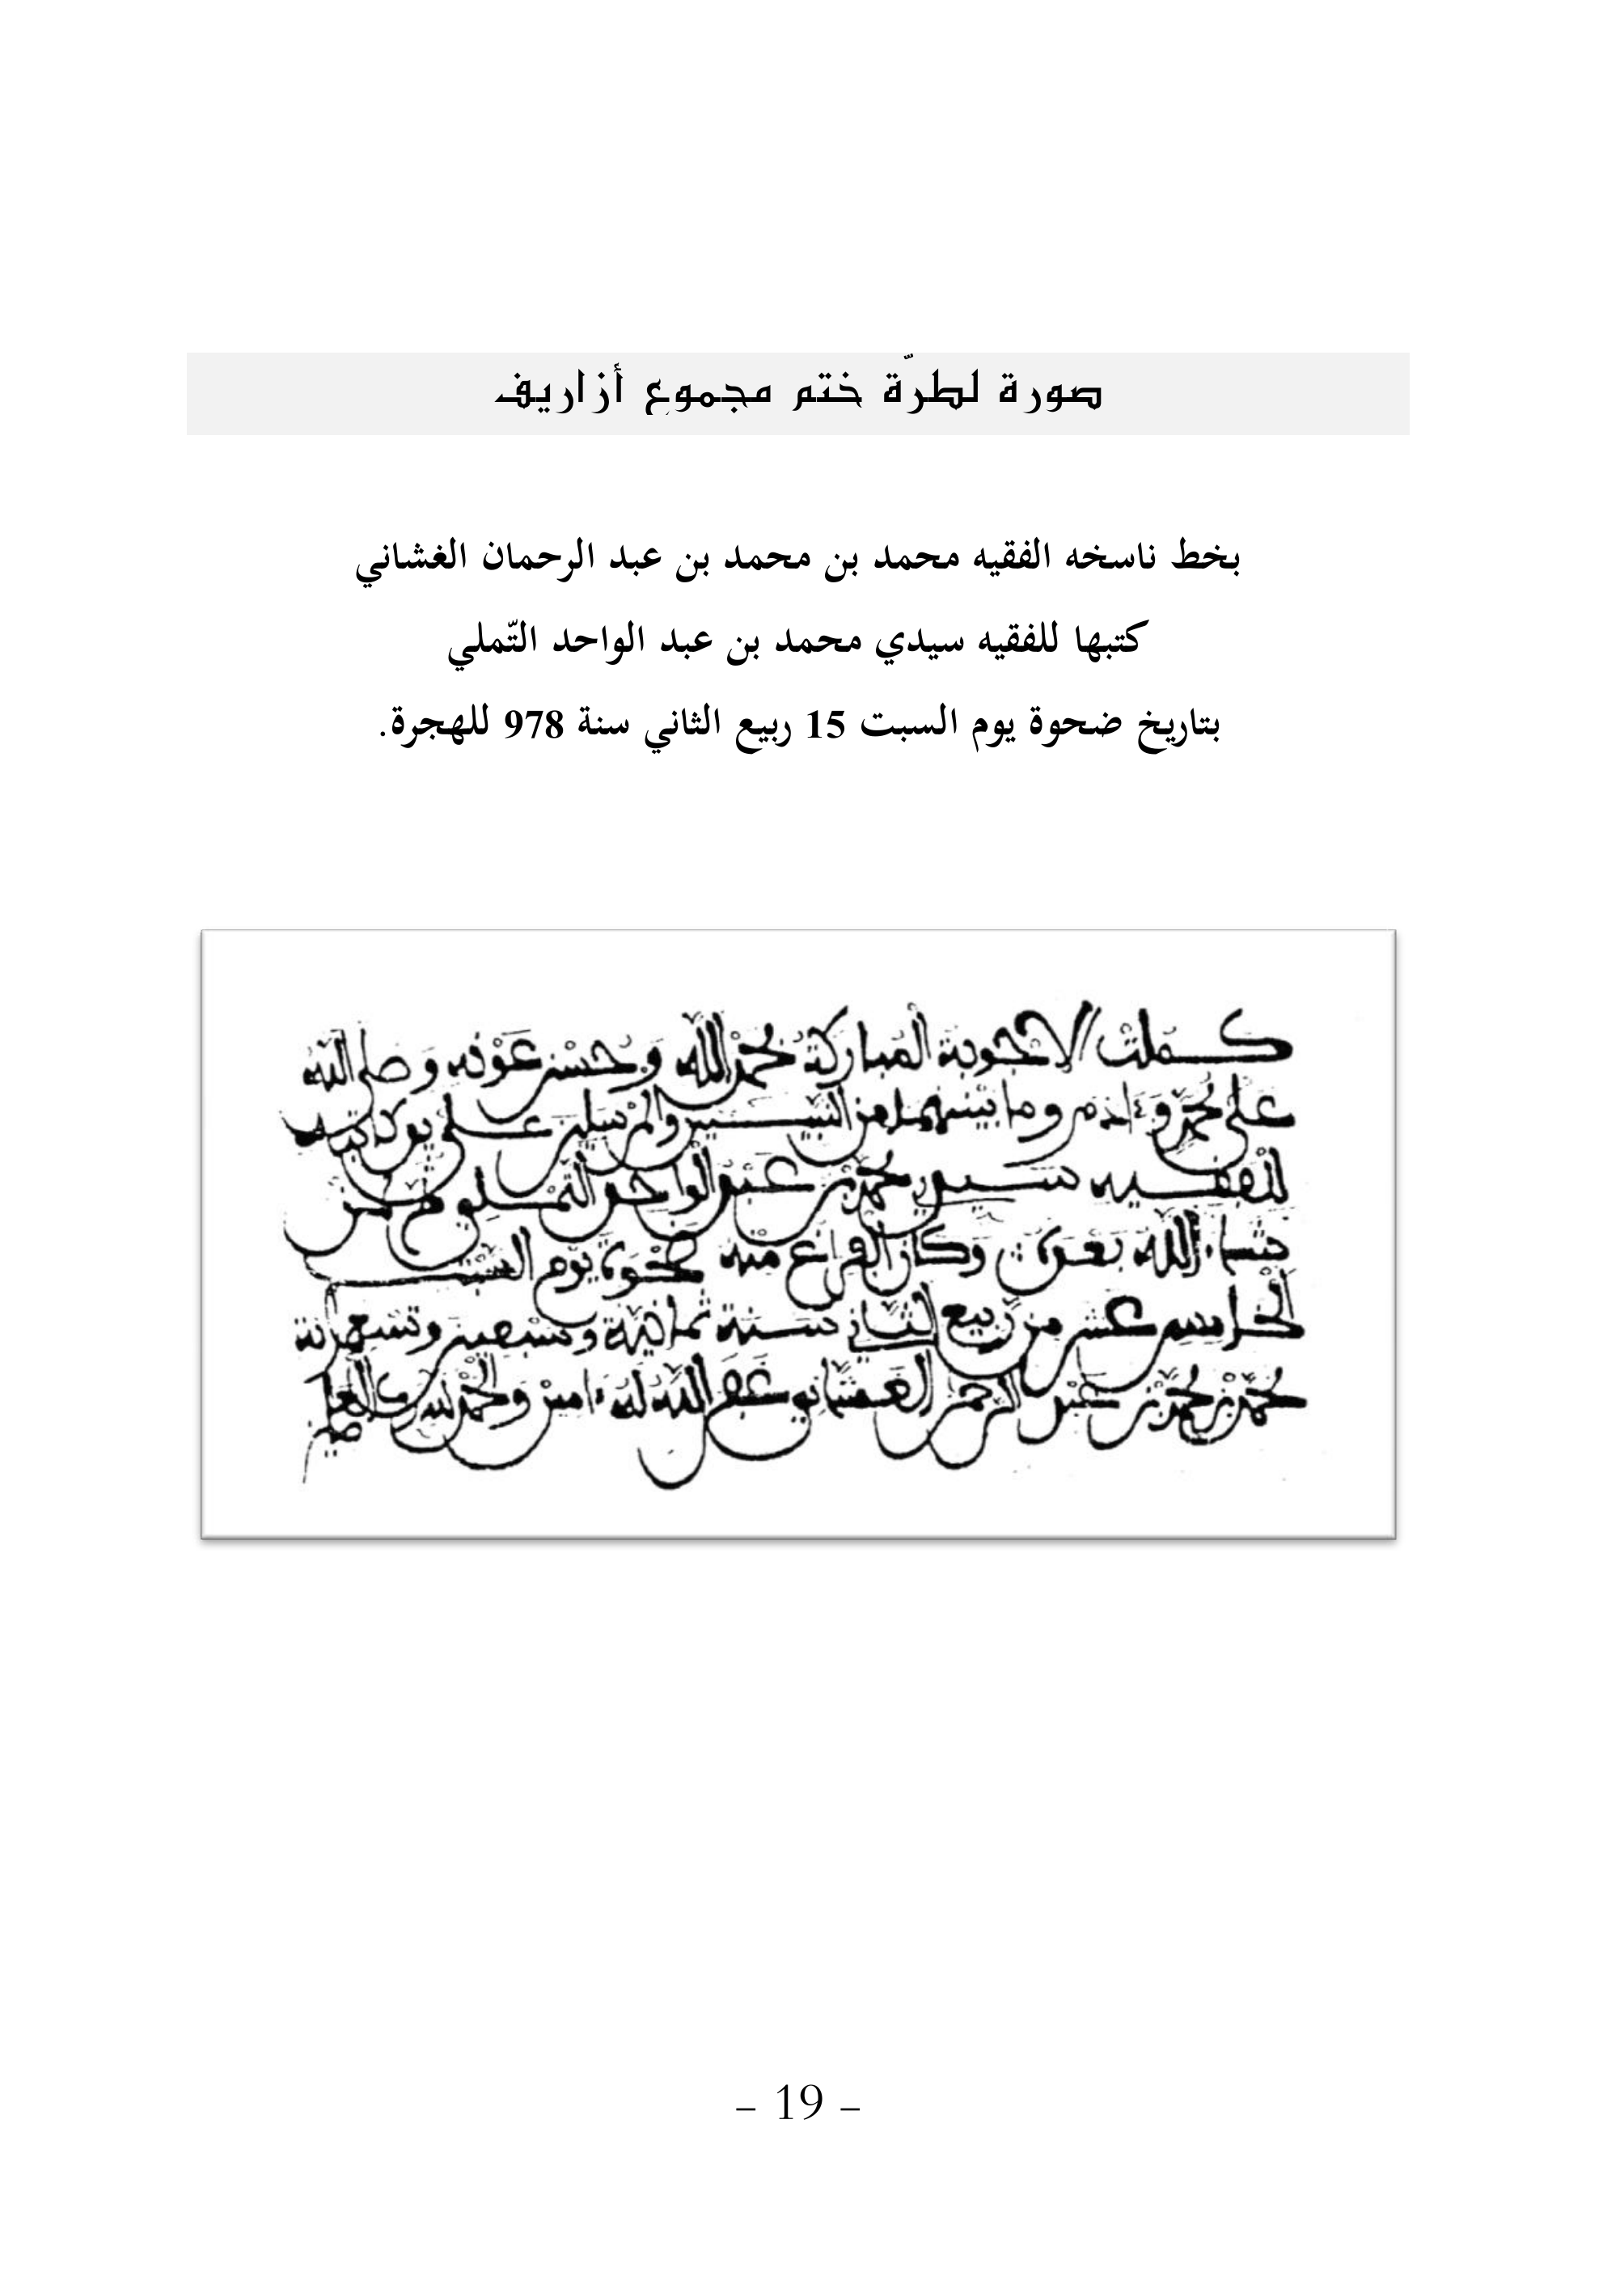 صورة لطرّة ختم مجموع أزاريف
بخط ناسخه الفقيه محمد بن محمد بن عبد الرحمان الغشاني
كتبها للفقيه سيدي محمد بن عبد الواحد التّملي
بتاريخ ضحوة يوم السبت 15 ربيع الثاني سنة 978 للهجرة.
كملت الاجوبة المباركة بحمد الله وحسن عونه وصلى الله
على محمد وءادم وما بينهما من النبيين والمرسلين على يد كاتبه
للفقيه سيدي محمد بن عبد الواحد التملي ثم لمن
شاء الله بعده وكان الفراغ منه ضحوة يوم السبت
الخامس عشر من ربيع الثاني سنة ثمانية وسبعين وتسعمائة
محمد بن محمد بن عبد الرحمن الغشاني غفر الله له ءامين والحمد لله رب العالمين
– 19 –